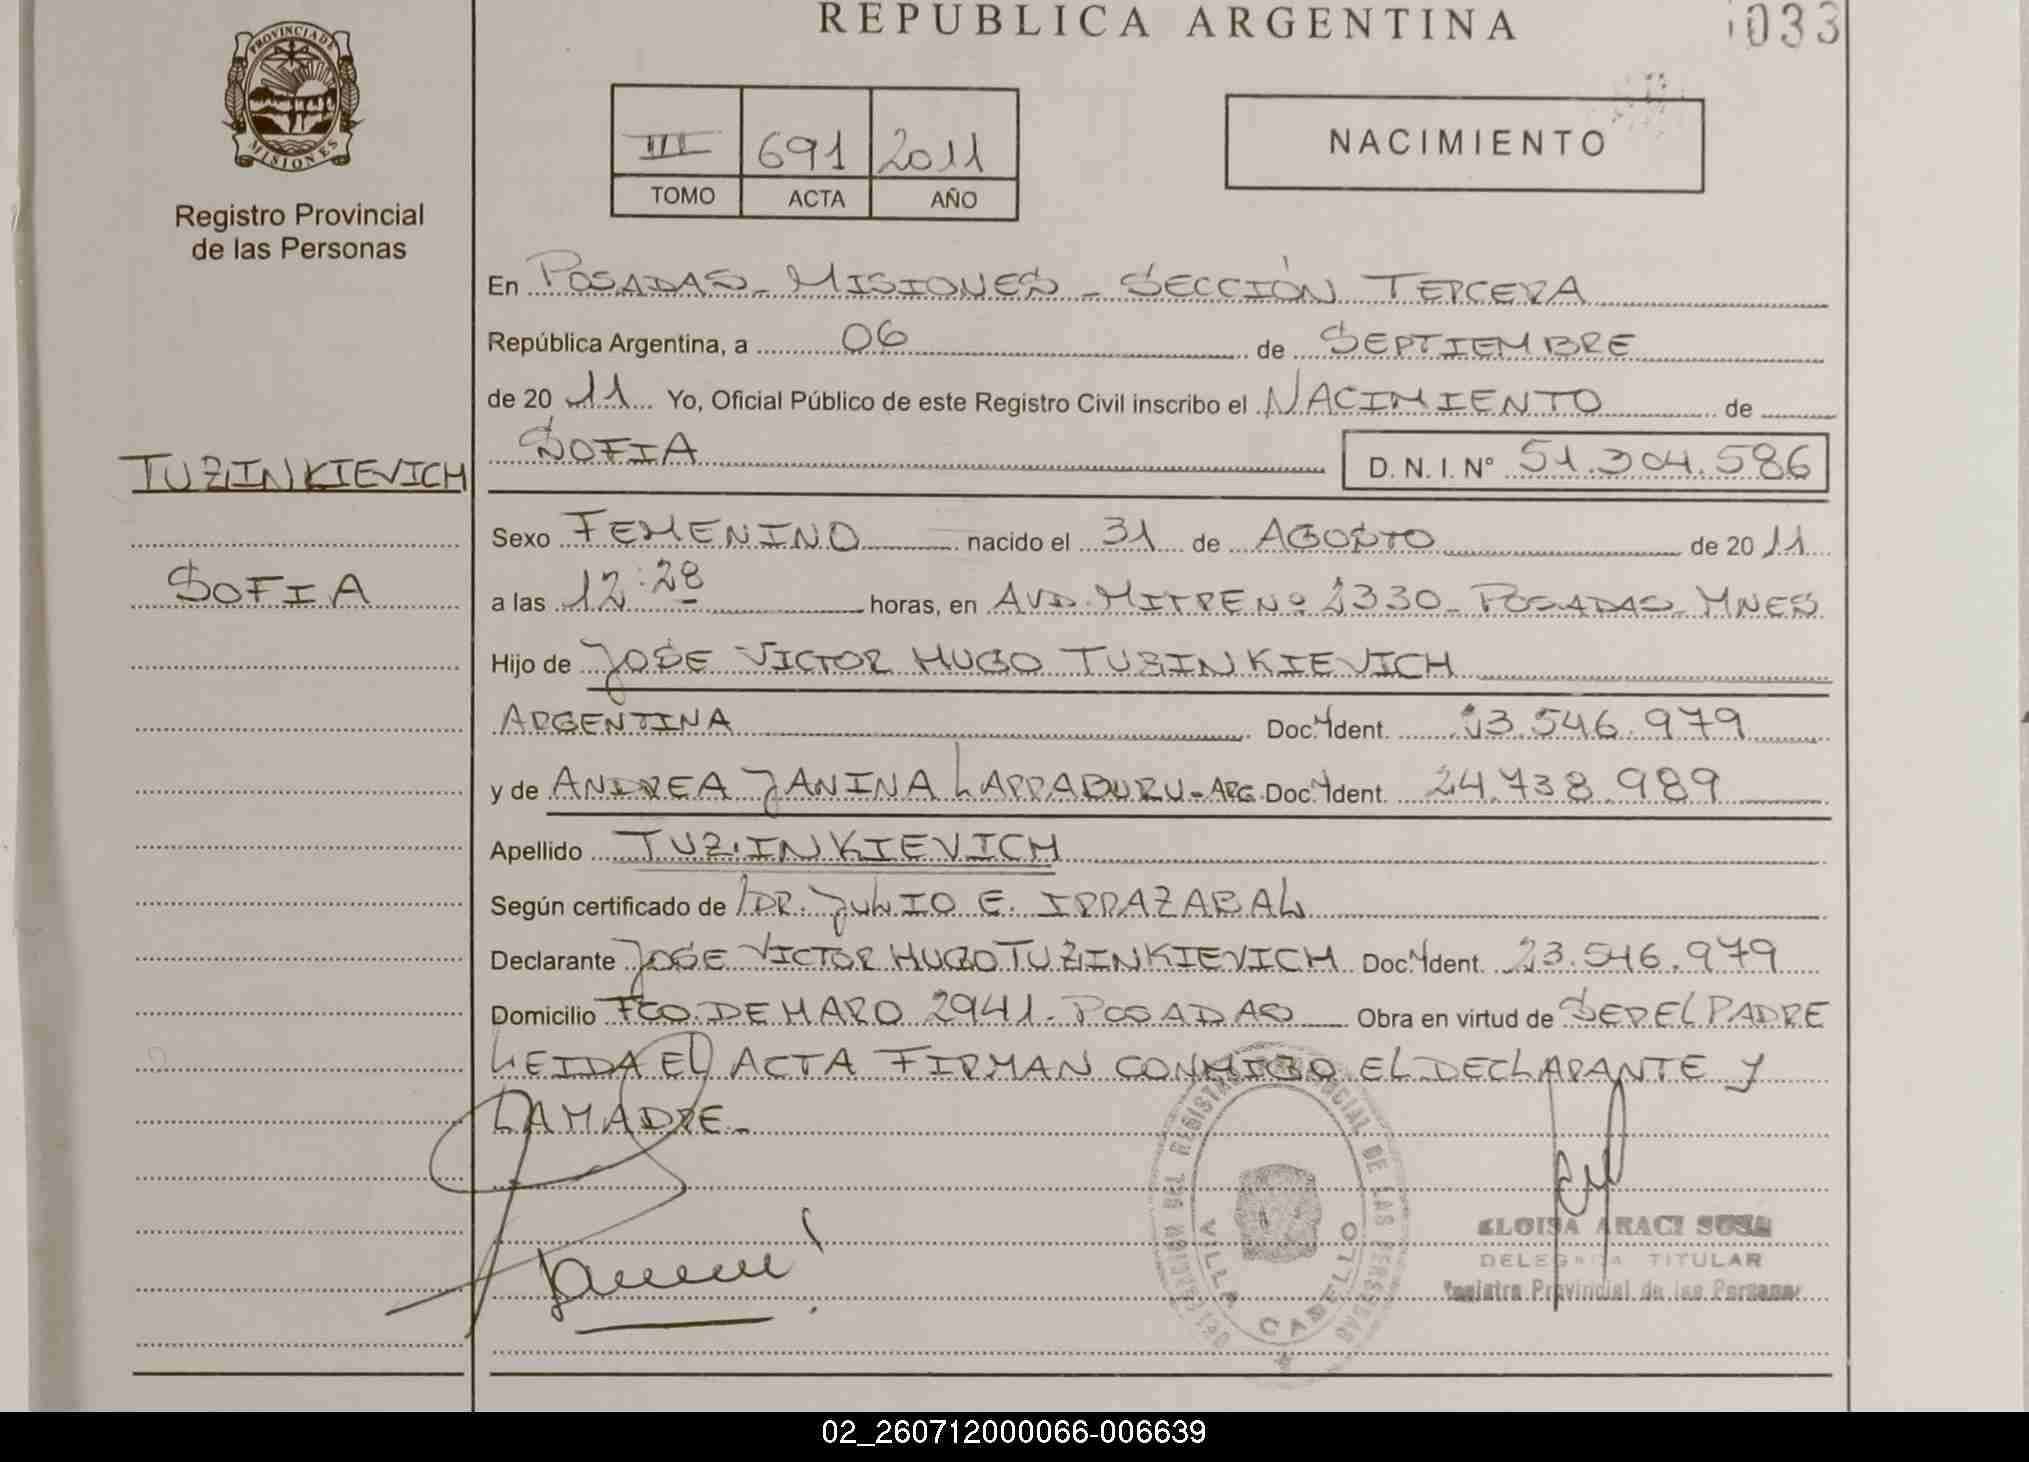 REPUBLICA ARGENTINA
033
PROVINCIA DE
MISIONES
Registro Provincial
de las Personas
III 691 2011
TOMO ACTA AÑO
NACIMIENTO
En POSADAS - MISIONES - SECCIÓN TERCERA
República Argentina, a 06 de SEPTIEMBRE
de 20 11 Yo, Oficial Público de este Registro Civil inscribo el NACIMIENTO de
SOFIA D. N. I. Nº 51.304.586
TUZINKIEVICH
SOFIA
Sexo FEMENINO nacido el 31 de AGOSTO de 20 11
a las 12:28 horas, en AVD. MITRE Nº 2330 - POSADAS - MNES
Hijo de JOSE VICTOR HUGO TUZINKIEVICH
ARGENTINA Doc. Ident. 23.546.979
y de ANDREA JANINA LARRABURU - ARG. Doc. Ident. 24.738.989
Apellido TUZINKIEVICH
Según certificado de DR. JULIO E. IRRAZABAL
Declarante JOSE VICTOR HUGO TUZINKIEVICH Doc. Ident. 23.546.979
Domicilio FCO. DE HARO 2941 - POSADAS Obra en virtud de SER EL PADRE
LEIDA EL ACTA FIRMAN CONMIGO EL DECLARANTE Y
LA MADRE -
VILLA CABELLO
ELOISA ARACI SOSA
DELEGADA TITULAR
Registro Provincial de las Personas
02_260712000066-006639